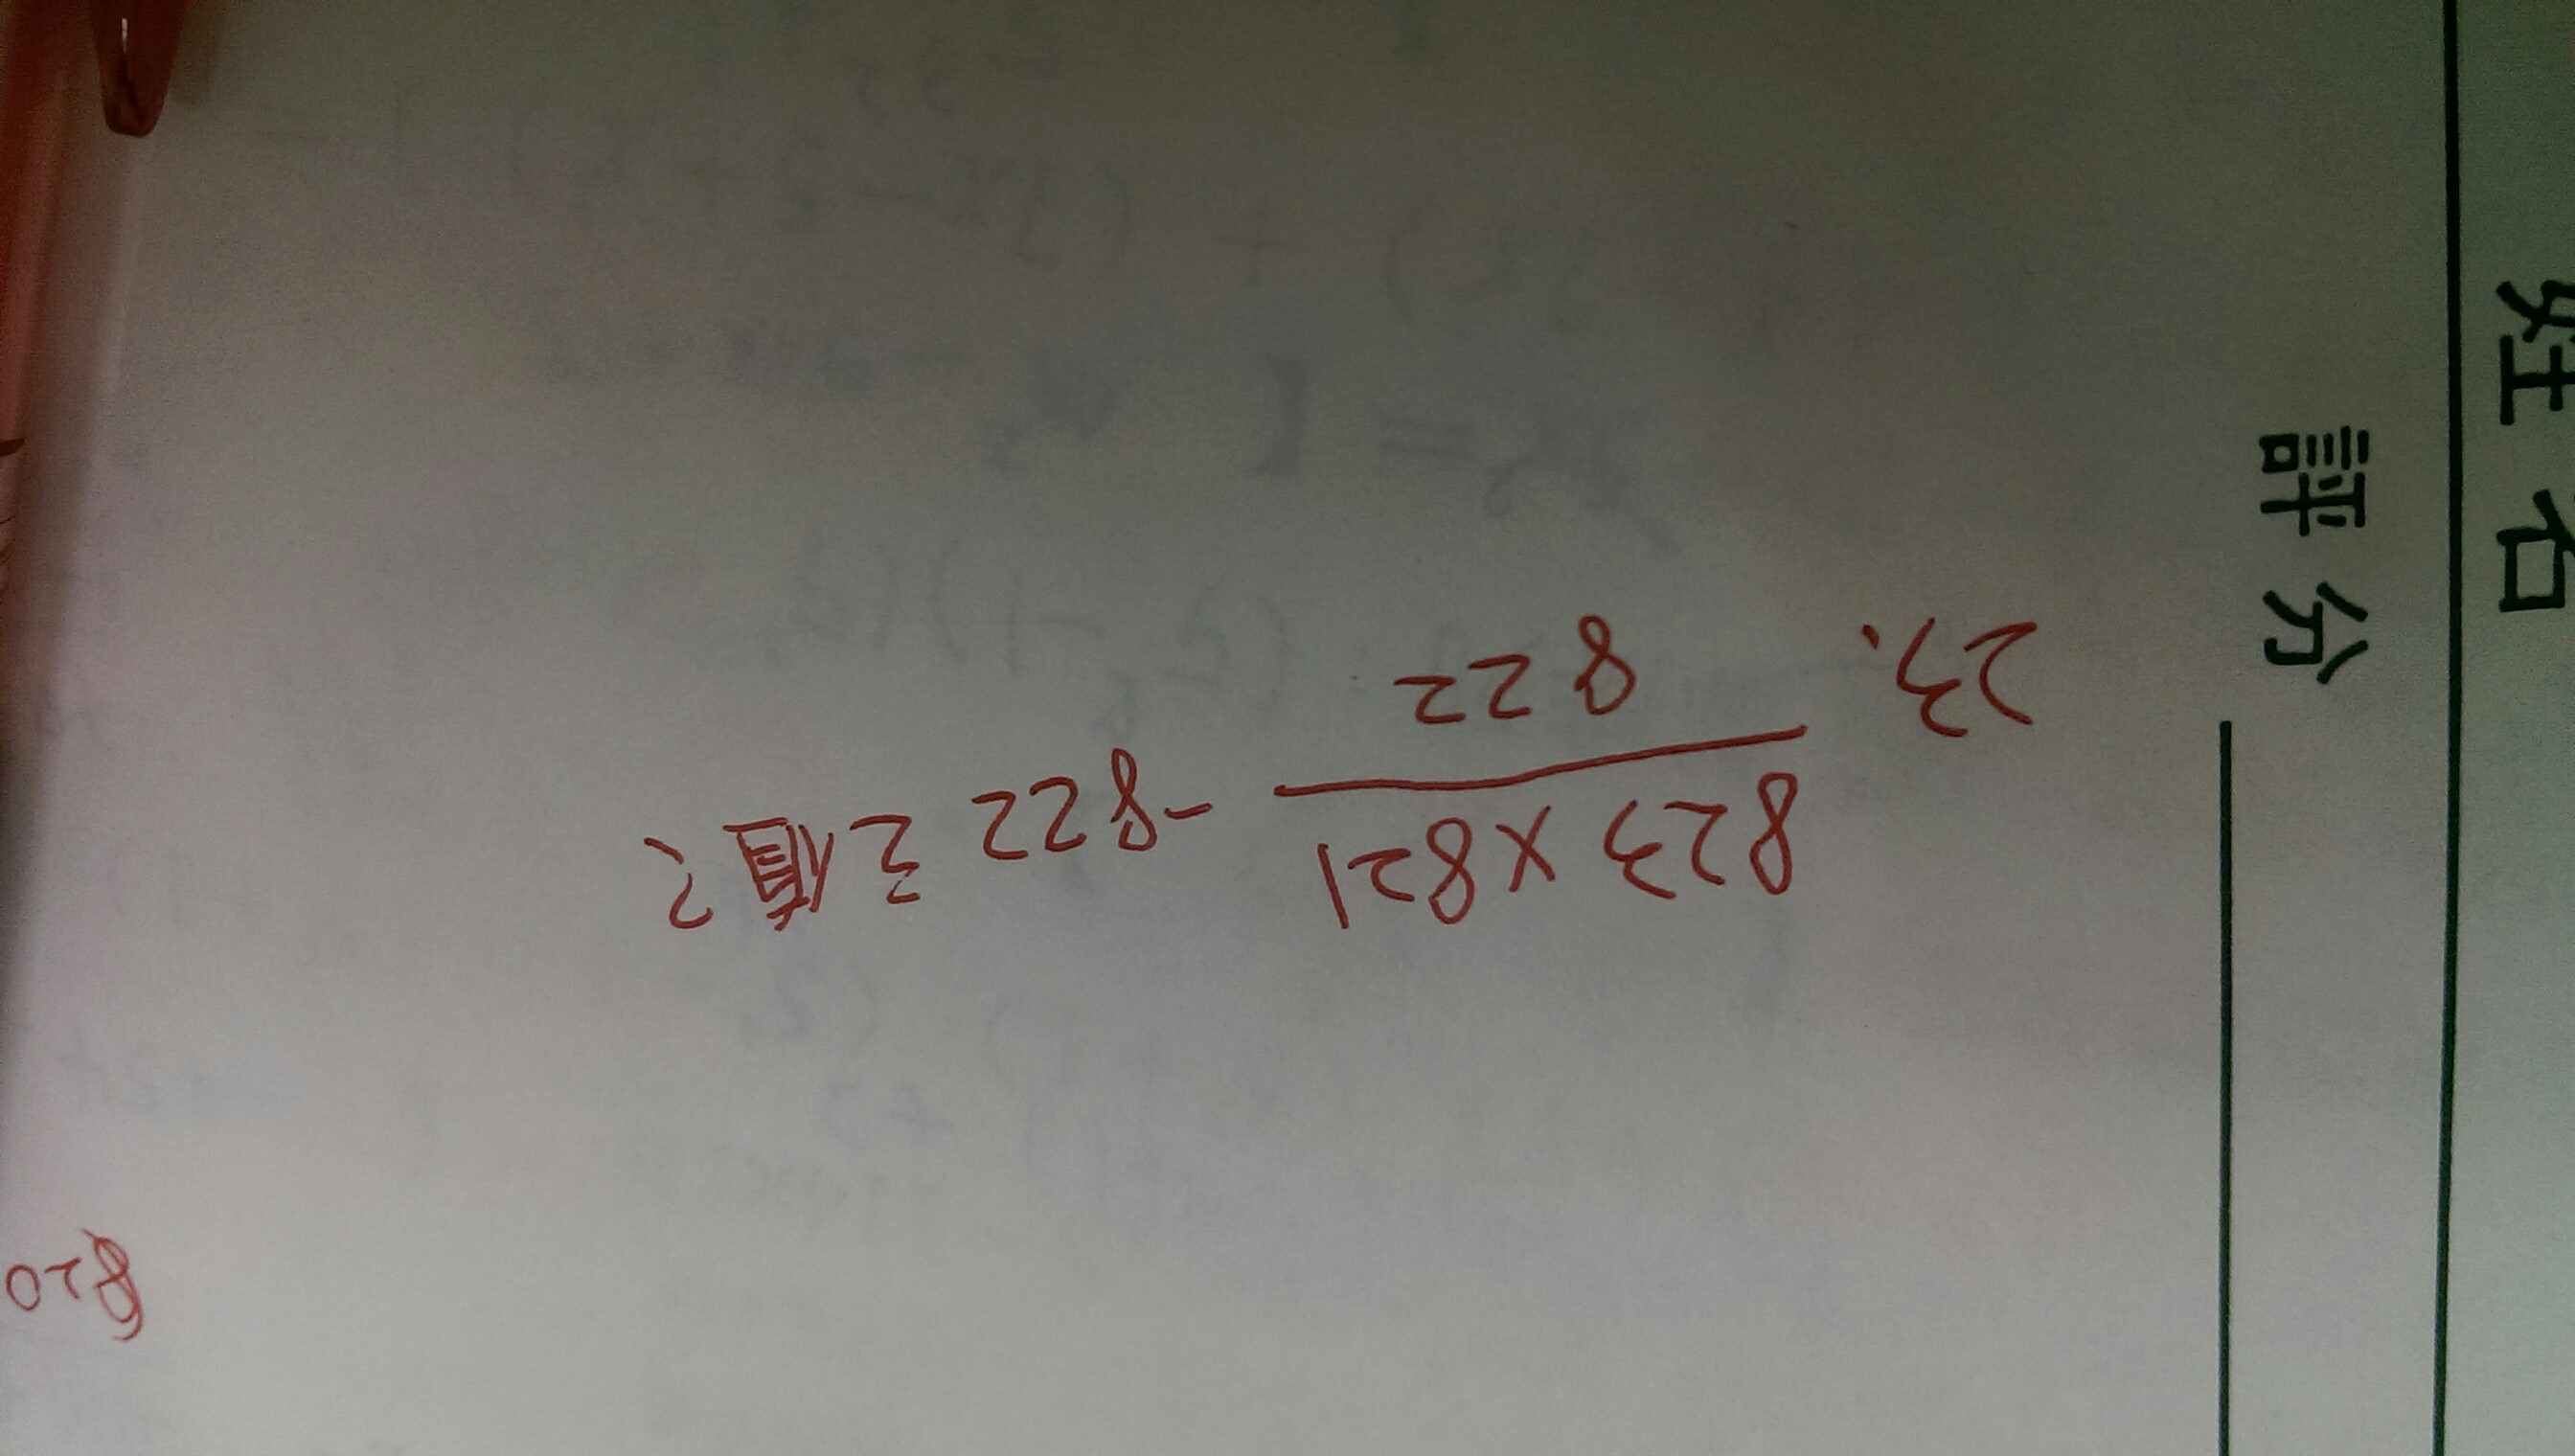 姓名
評分
820
23. 823×821
822
-822 之值?